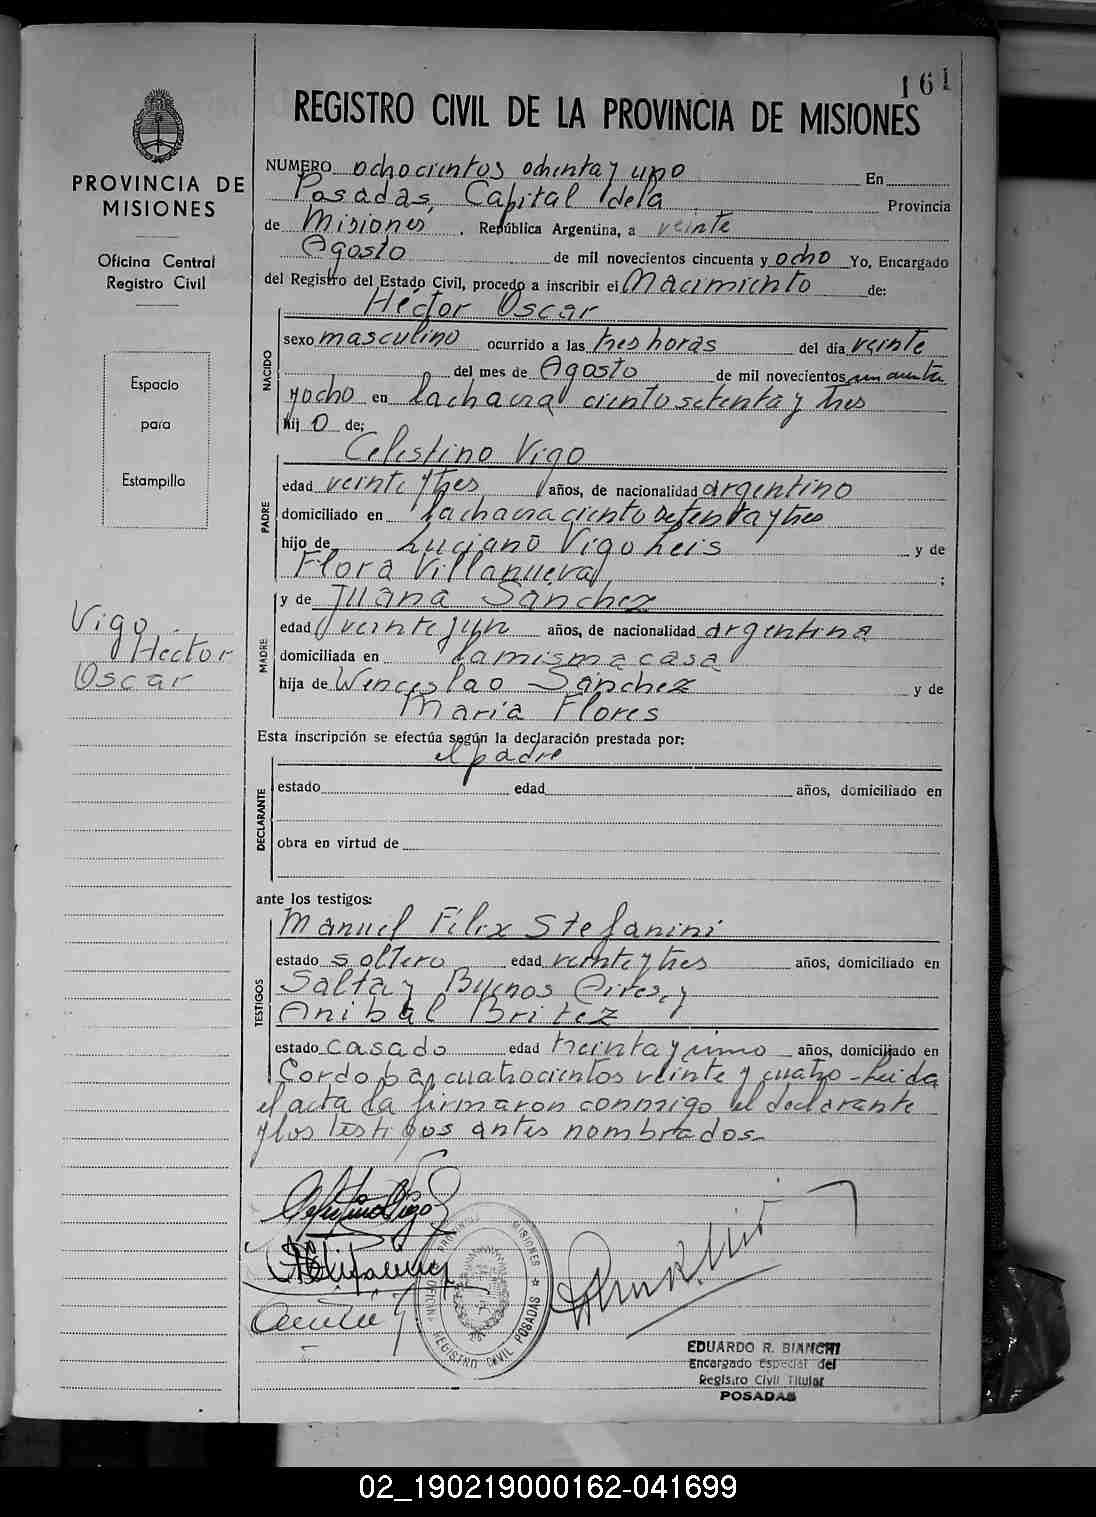 161
REGISTRO CIVIL DE LA PROVINCIA DE MISIONES
PROVINCIA DE
MISIONES
Oficina Central
Registro Civil
Espacio
para
Estampilla
Vigo
Hector
Oscar
NUMERO ochocientos ochenta y uno En
Posadas, Capital de la Provincia
de Misiones, República Argentina, a veinte
Agosto de mil novecientos cincuenta y ocho Yo, Encargado
del Registro del Estado Civil, procedo a inscribir el Nacimiento de:
Héctor Oscar
NACIDO
sexo masculino ocurrido a las tres horas del día veinte
del mes de Agosto de mil novecientos cincuenta
y ocho en la chacra ciento setenta y tres
hij o de:
Celestino Vigo
PADRE
edad veinte y tres años, de nacionalidad argentino
domiciliado en la chacra ciento setenta y tres
hijo de Luciano Vigo Leis y de
Flora Villanueva ;
y de Juana Sánchez
MADRE
edad veinte y un años, de nacionalidad argentina
domiciliada en la misma casa
hija de Wenceslao Sánchez y de
María Flores
Esta inscripción se efectúa según la declaración prestada por:
el padre
DECLARANTE
estado edad años, domiciliado en
obra en virtud de
ante los testigos:
Manuel Félix Stefanini
TESTIGOS
estado soltero edad veinte y tres años, domiciliado en
Salta y Buenos Aires, y
Anibal Britez
estado casado edad treinta y uno años, domiciliado en
Cordoba cuatrocientos veinte y cuatro - Leida
el acta la firmaron conmigo el declarante
y los testigos antes nombrados.
Celestino Vigo
PROVINCIA MISIONES
OFICINA REGISTRO CIVIL POSADAS
EDUARDO R. BIANCHI
Encargado Especial del
Registro Civil Titular
POSADAS
02_190219000162-041699